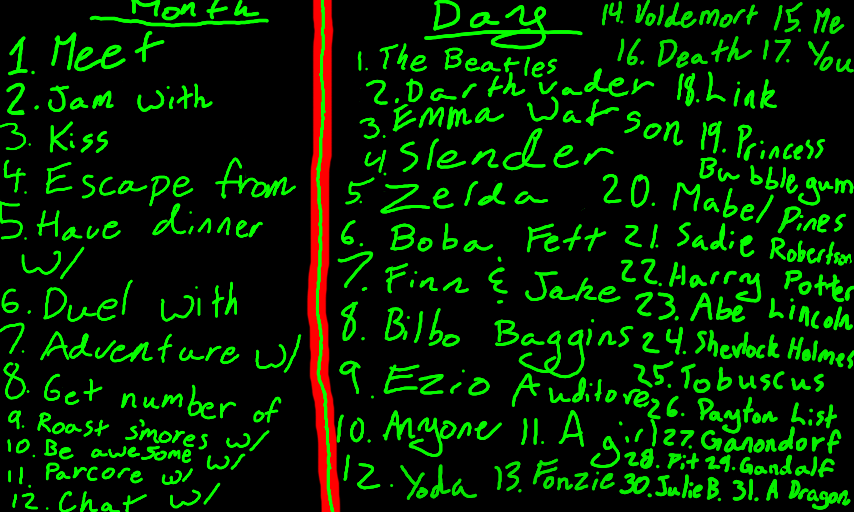 Month
1. Meet
2. Jam with
3. Kiss
4. Escape from
5. Have dinner
w/
6. Duel with
7. Adventure w/
8. Get number of
9. Roast s'mores w/
10. Be awesome w/
11. Parcore w/
12. Chat w/
Days
1. The Beatles
2. Darth vader
3. Emma Watson
4. Slender
5. Zelda
6. Boba Fett
7. Finn & Jake
8. Bilbo Baggins
9. Ezio Auditore
10. Anyone 11. A girl
12. Yoda 13. Fonzie
14. Voldemort 15. Me
16. Death 17. You
18. Link
19. Princess
Bubblegum
20. Mabel Pines
21. Sadie Robertson
22. Harry Potter
23. Abe Lincoln
24. Sherlock Holmes
25. Tobuscus
26. Payton List
27. Ganondorf
28. Pit 29. Gandalf
30. Julie B. 31. A Dragon